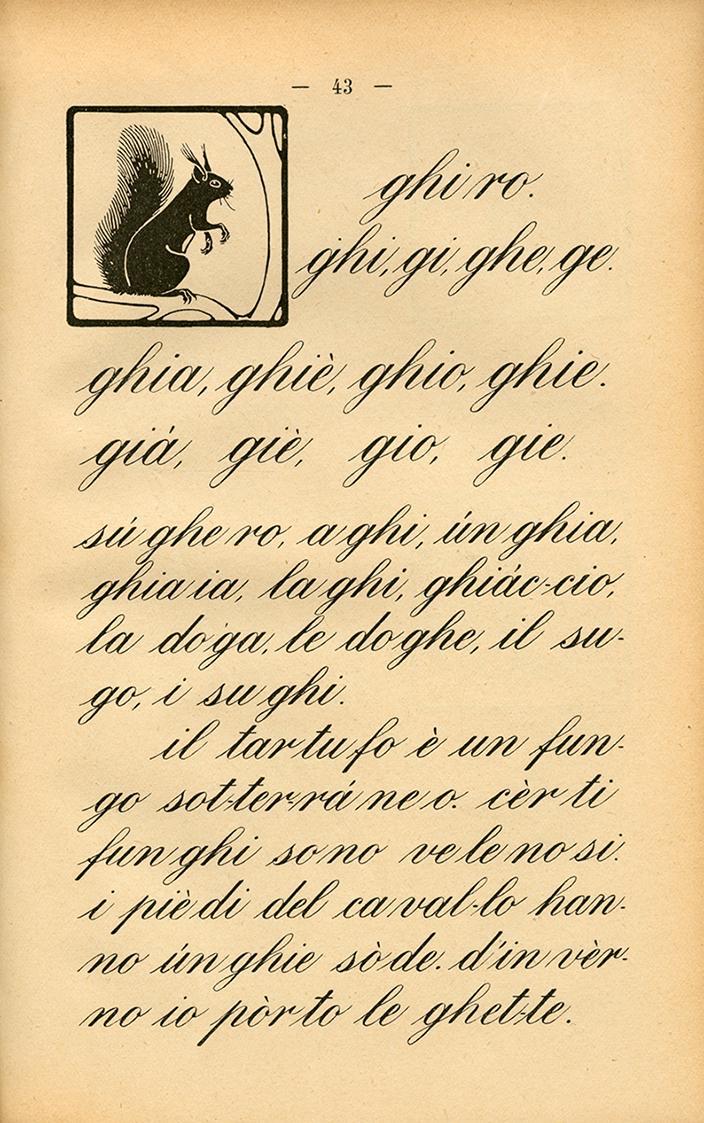 — 43 —
ghi ro.
ghi, gi, ghe, ge.
ghia, ghiè, ghio, ghie.
giá, giè, gio, gie.
sú ghe ro, a ghi, ún ghia,
ghia ia, la ghi, ghiác-cio,
la do ga, le do ghe, il su-
go, i su ghi.
il tar tu fo è un fun-
go sot-ter-rá ne o. cèr ti
fun ghi so no ve le no si.
i piè di del ca val-lo han-
no ún ghie sò de. d'in vèr-
no io pòr to le ghet-te.